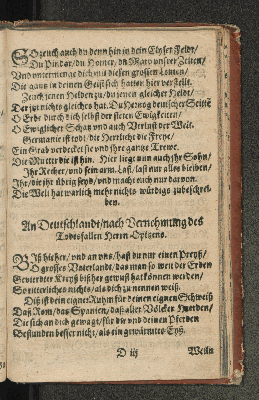 SO zeuch auch du denn hin in dein Elyser Feldt/
Du Pindar/ du Homer/ du Maro unsrer Zeiten/
Und untermenge dich mit diesen grossen Leuten/
Die gantz in deinen Geist sich hatten hier verstellt.
Zeuch jenen Helden zu/ du jenen gleicher Heldt/
Der jetzt nichts gleiches hat. Du Hertzog deutscher Seiten
O Erbe durch dich selbst der steten Ewigkeiten/
O Ewiglicher Schatz und auch Verlust der Welt.
Germanie ist todt/ die Herrliche die Freye/
Ein Grab verdecket sie und ihre gantze Trewe.
Die Mutter die ist hin. Hier liegt nun auch ihr Sohn/
Ihr Recher/ und sein arm. Last/ last nur alles bleiben/
Ihr/ die ihr übrig seyd/ und macht euch nur davon.
Die Welt hat warlich mehr nichts würdigs zubeschrei-
ben.
An Deutschlandt/ nach Vernehmung des
Todesfalles Herrn Opitzens.
BIß hieher/ und an uns/ hast du nur einen Preyß/
O grosses Vaterland/ das man so weit der Erden
Gevierdter Creyß bißher gewust hat können werden/
So ritterliches nichts/ als dich zu nennen weiß.
Diß ist dein eigner Ruhm für deinen eignen Schweiß
Daß Rom/ das Spanien/ daß aller Völcker
Die sich an dich gewagt/ für dir und deinen Pferden
Bestunden besser nicht/ als ein gewärmtes Eyß.
D iij Weiln